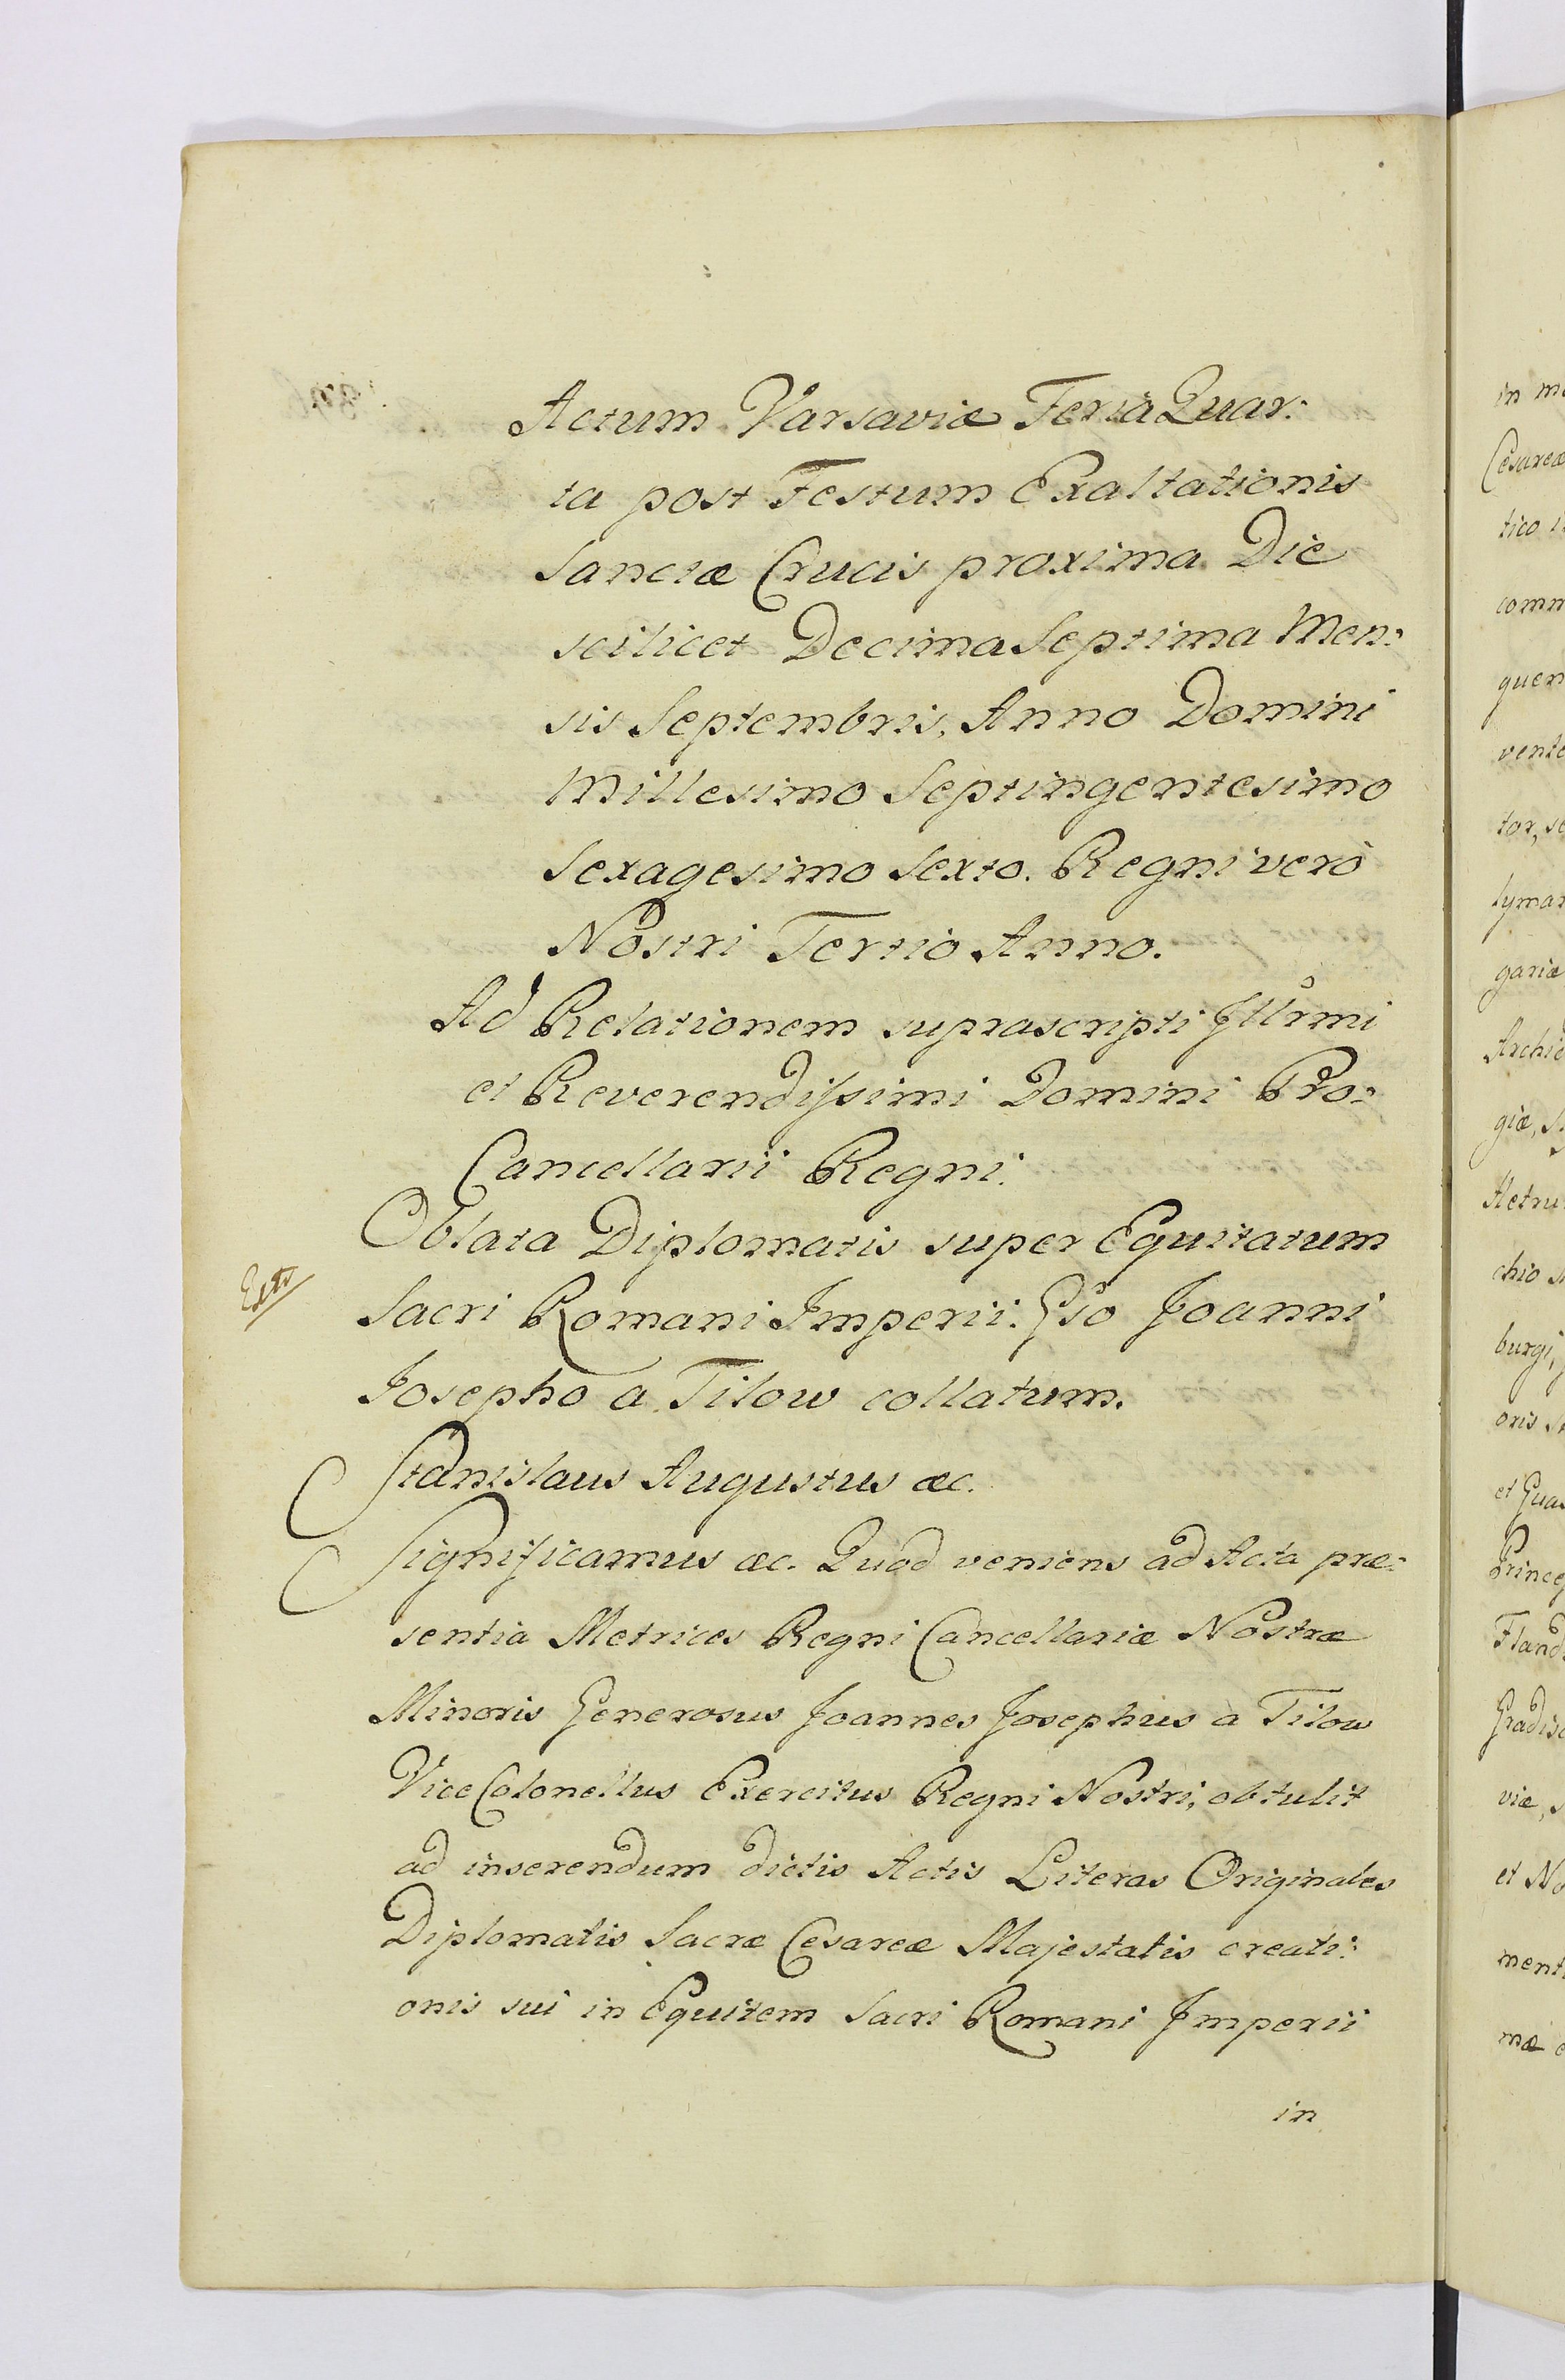 Actum Varsaviæ Feria Quar:
ta post Festum Exaltationis
Sanctæ Crucis proxima Die
scilicet Decima Septima Men:
sis Septembris, Anno Domini
Millesimo Septingentesimo
Sexagesimo Sexto. Regni verò
Nostri Tertio Anno.
Ad Relationem suprascripti Jllrmi
et Reverendissimi Domini Pro:
Cancellarii Regni.
Oblata Diplomatis super Equitatum
Sacri Romani Imperii. Gso Joanni
Josepho a Tilow collatum.
Stanislaus Augustus æc.
Significamus æc. Quod veniens ad Acta præ:
sentia Metrices Regni Cancellariæ Nostræ
Minoris Generosus Joannes Josephus à Tilow
Vice Colonellus Exercitus Regni Nostri, obtulit
ad inserendum dictis Actis Literas Originales
Diplomatis Sacræ Cesareæ Majestatis creati:
onis sui in Equitem Sacri Romani Imperii
in
Cesareæ
tico
comm
quen
gariæ
giæ,
chio
burgi,
oris
viæ,
et No
mæ